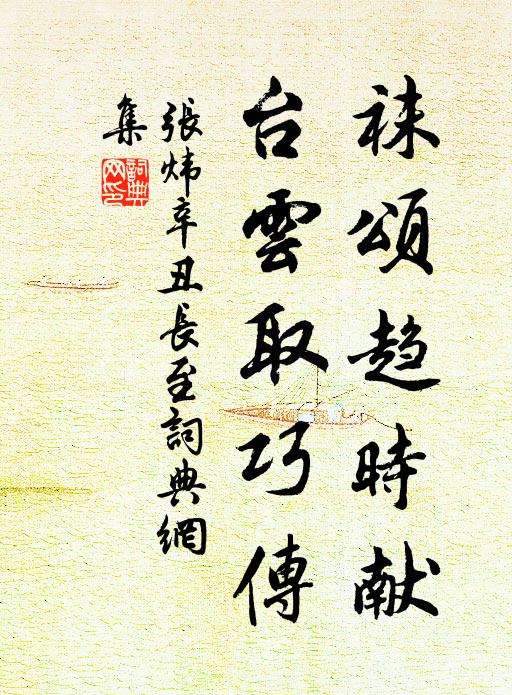 袜頌趋時献
台雲取巧傳
張炜辛丑長至詞典網
集
詞典
网印